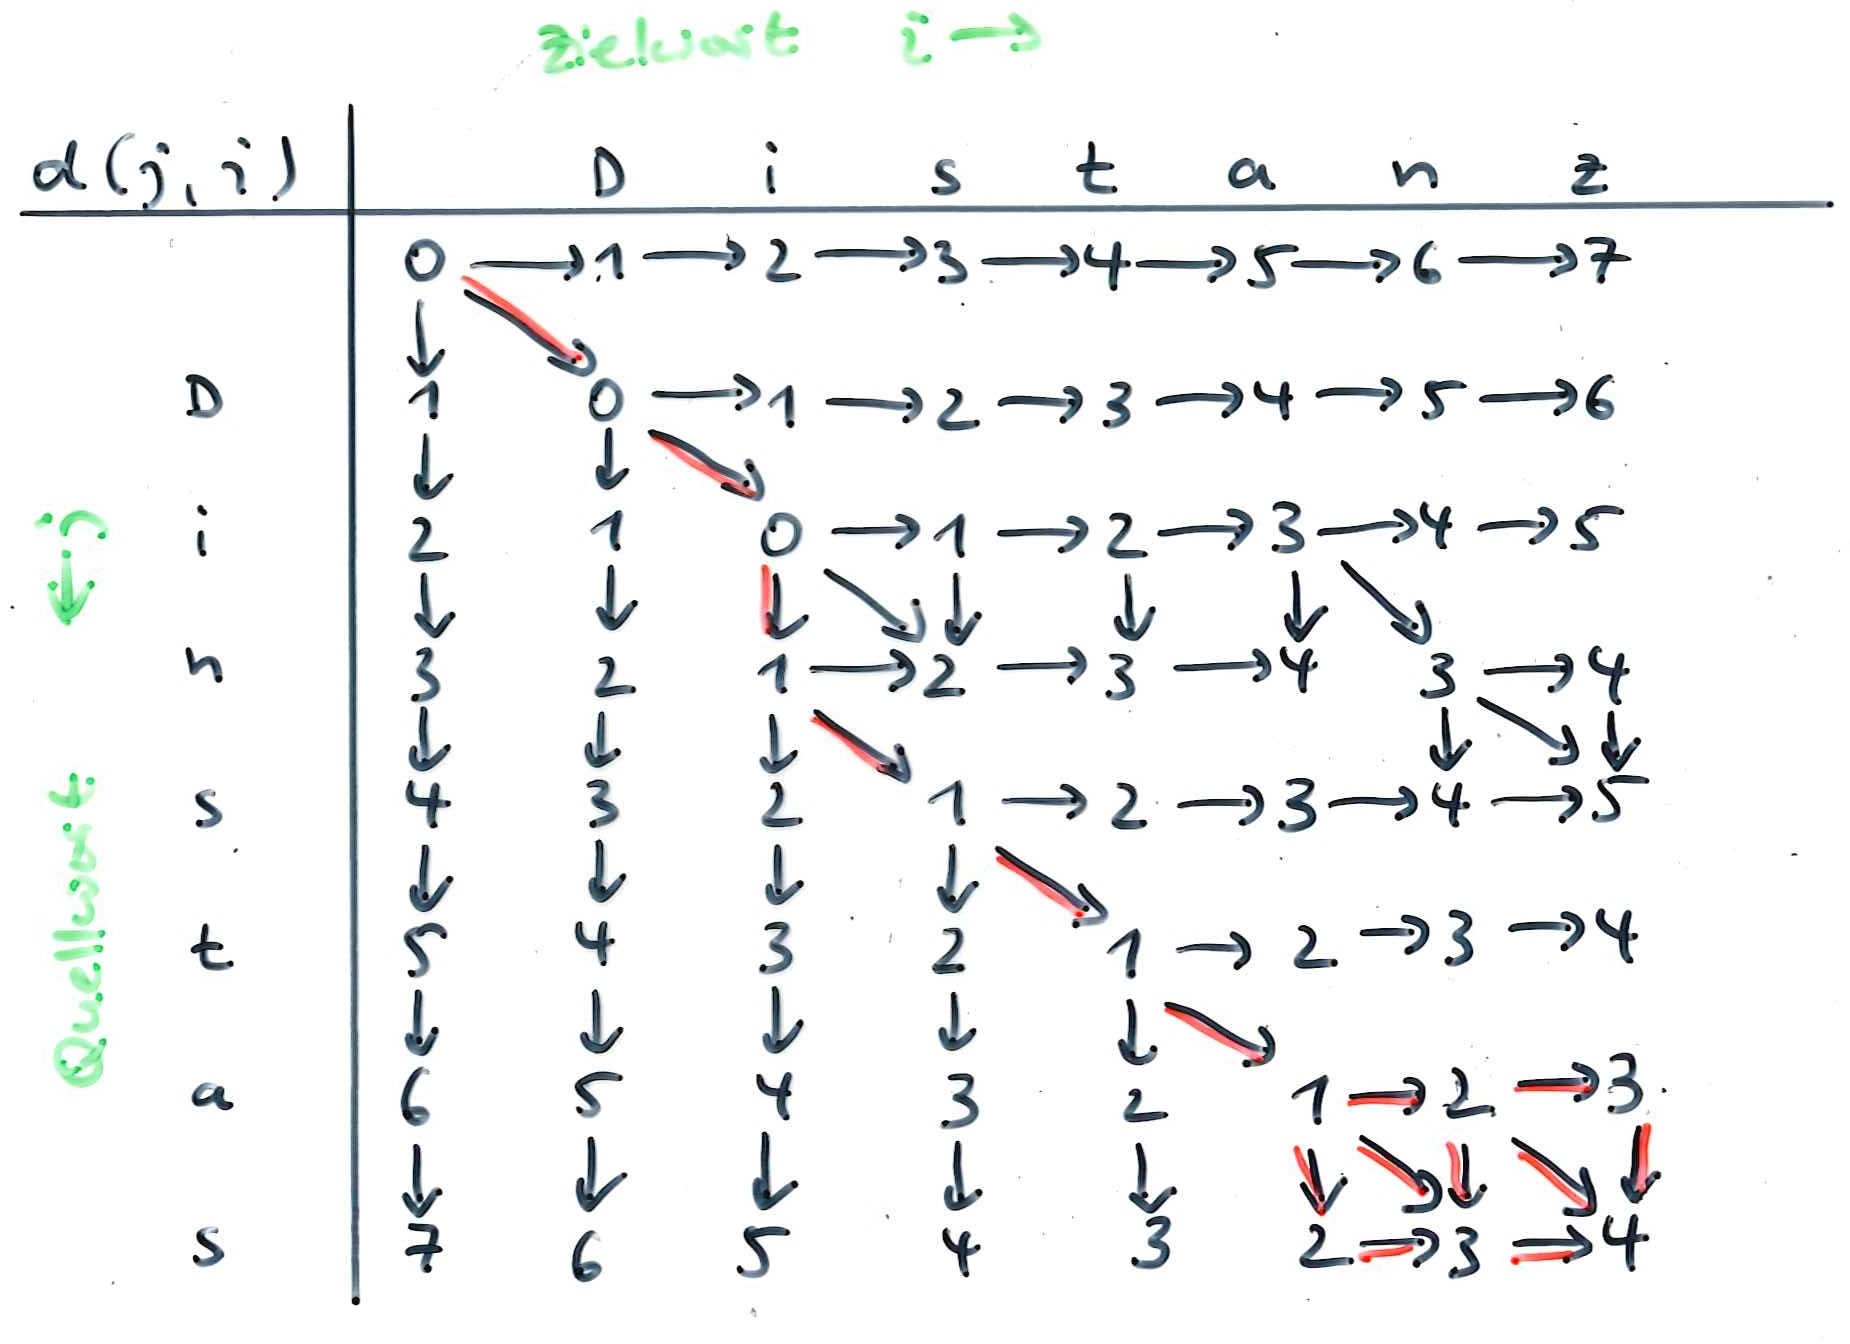 Zielwort i →
d(j, i) D i s t a n z
0 → 1 → 2 → 3 → 4 → 5 → 6 → 7
D 1 0 → 1 → 2 → 3 → 4 → 5 → 6
i 2 1 0 → 1 → 2 → 3 → 4 → 5
n 3 2 1 → 2 → 3 → 4 3 → 4
s 4 3 2 1 → 2 → 3 → 4 → 5
t 5 4 3 2 1 → 2 → 3 → 4
a 6 5 4 3 2 1 → 2 → 3
s 7 6 5 4 3 2 → 3 → 4
Quellwort j →